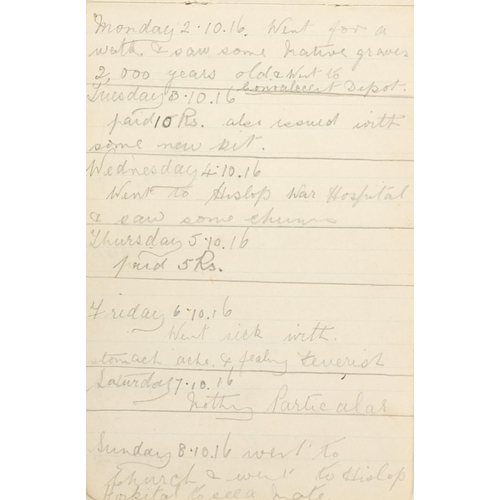 Monday 2.10.16. Went for a
walk & saw some Native graves
2,000 years old & Went to
Convalescent Depot.
Tuesday 3.10.16
paid 10 Rs. also issued with
some new kit.
Wednesday 4.10.16
Went to Hislop War Hospital
& saw some chums
Thursday 5.10.16
paid 5 Rs.
Friday 6.10.16
Went sick with
stomach ache & feeling feverish
Saturday 7.10.16
Nothing Particular
Sunday 8.10.16 went to
church & went to Hislop
Hospital to see a mate